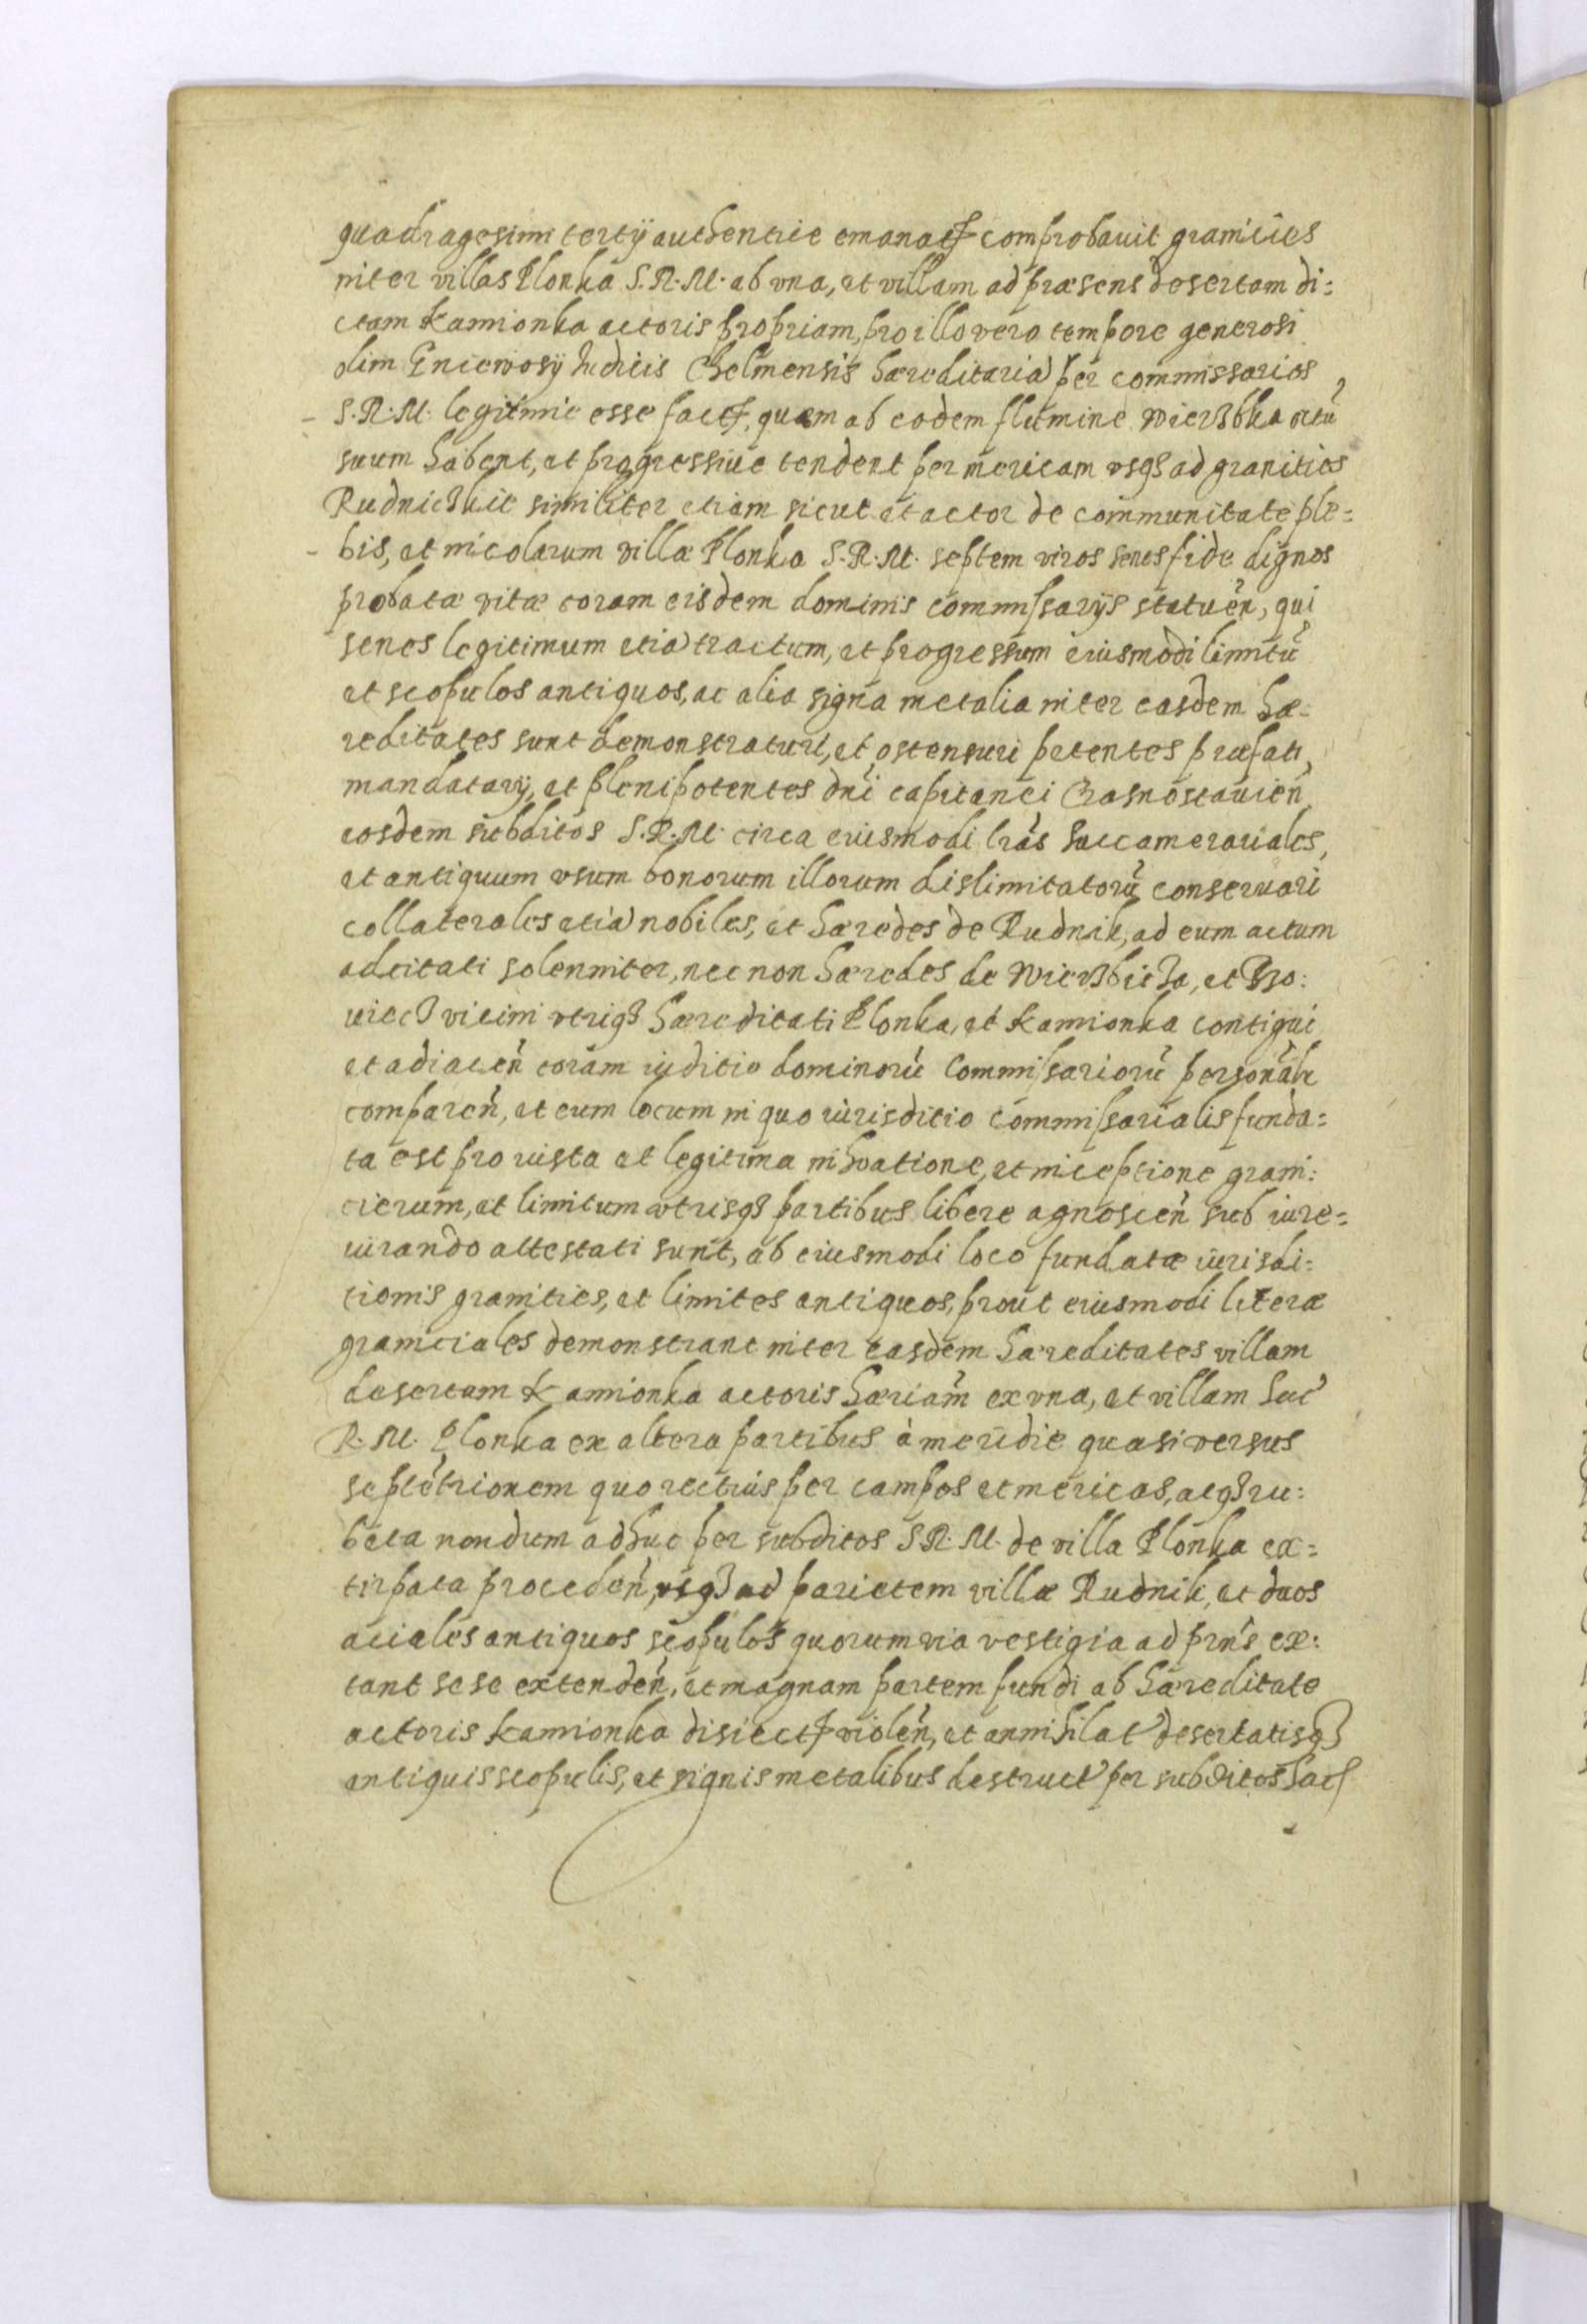 quadragesimi tertÿ authentice emanat comprobavit granicies
inter villas Plonka S. R. M. ab vna, et villam ad præsens desertam di=
ctam Kamionka actoris propriam, pro illo vero tempore generosi
olim Gniewosÿ Judicis Chelmensis hæreditariã per commissarios
S. R. M. legitimie esse fact, quam ab eodem flumine Wierzbka ortũ
suum habent, et progressiue tendent per mericam vsq3 ad granities
Rudniczkie similiter etiam sicut et actor de communitate ple=
bis, et incolarum villæ Plonka S. R. M. septem viros senes fide dignos
probatæ vitæ coram eisdem dominis commissarÿs statuen̉, qui
senes legitimum etiã tractum, et progressum eiusmodi limitũ
et scopulos antiquos, ac alia signa metalia inter easdem hæ=
reditates sunt demonstraturi, et ostensuri petentes præfati
mandatarÿ, et plenipotentes dni capitanei Crasnostauien̉
eosdem subditos S. R. M. circa eiusmodi lr̃as succamerariales,
et antiquum vsum bonorum illorum dislimitatorũ conseruari
collaterales etiã nobiles, et hæredes de Rudnik, ad eum actum
adcitati solenniter, nec non hæredes de Wierzbicza, et
vicini vtriq3 hæreditati Plonka, et Kamionka contigui
et adiacen̉ coram iuditio dominorũ Commissariorũ personãlr
comparen̉, et eum locum in quo iurisditio commissarialis funda=
ta est pro iusta et legitima inhoatione, et inceptione grani=
cierum, et limitum vtrisq3 partibus libere agnoscen̉ sub iure=
iurando attestati sunt, ab eiusmodi loco fundatæ iurisdi=
tionis granities, et limites antiquos, prout eiusmodi literæ
graniciales demonstrant inter easdem hæreditates villam
desertam Kamionka actoris hæriam̃ ex vna, et villam Sac
R. M. Plonka ex altera partibus à meridie quasi versus
septẽtrionem quo rectius per campos et mericas, atq3 ru=
beta nondum adhuc per subditos S. R. M. de villa Plonka ex=
tirpata proceden̉, vsq3 ad parietem villæ Rudnik, et duos
aciales antiquos scopulos quorum via vestigia ad prñs ex=
tant sese extenden̉, et magnam partem fundi ab hæreditate
actoris Kamionka disiect violen̉, et annihilat desertatisq3
antiquis scopulis, et signis metalibus destruct per subditos Sac